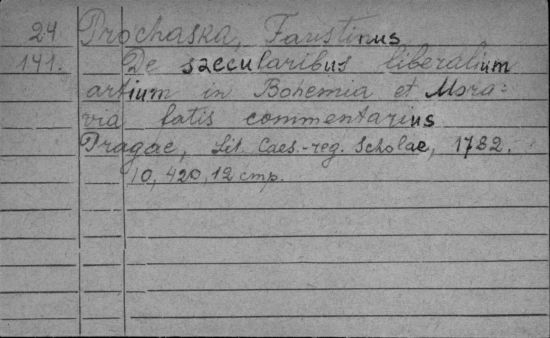 24 Prochaska, Faustinus
141. De saecularibus liberalium
artium in Bohemia et Mora-
via fatis commentarius
Pragae, Lit. Caes.-reg. Scholae, 1782.
10, 420, 12 стр.